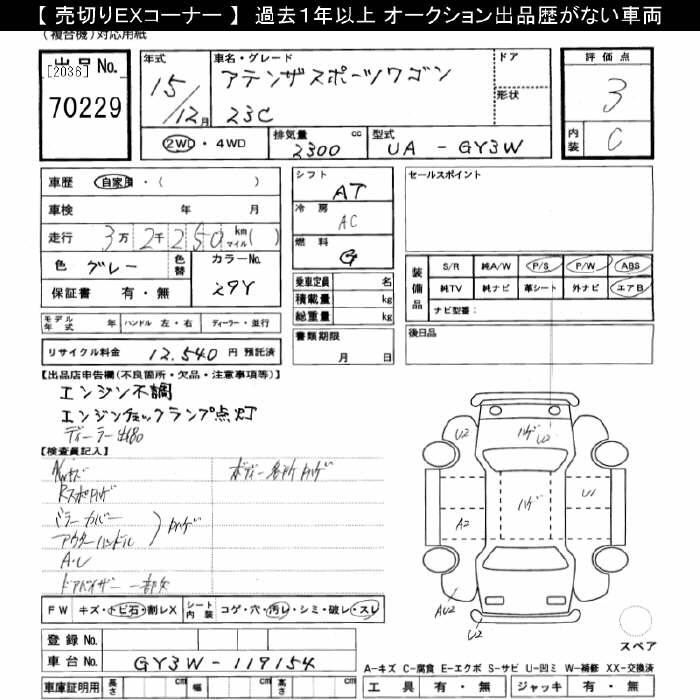 【 売切りEXコーナー 】 過去1年以上 オークション出品歴がない車両
(複合機)対応用紙
出品No.
[2036]
70229
年式
15/12月
車名・グレード
アテンザスポーツワゴン
23C
ドア
形状
評価点
3
内装
C
2WD・4WD
排気量
2300 cc
型式
UA - GY3W
車歴 自家用・( )
車検 年 月
走行 3万2千250 km マイル( )
色 グレー 色替 カラーNo. 29Y
保証書 有・無
シフト AT
冷房 AC
燃料 G
乗車定員 名
積載量 kg
総重量 kg
書類期限
月 日
セールスポイント
装備品
S/R 純A/W P/S P/W ABS
純TV 純ナビ 革シート 外ナビ エアB
ナビ型番:
後日品
モデル年式 年 ハンドル 左・右 ディーラー・並行
リサイクル料金 12,540 円 預託済
【出品店申告欄(不良箇所・欠品・注意事項等)】
エンジン不調
エンジンチェックランプ点灯
ディーラー
【検査員記入】
A/Wキズ
ミラーカバー
アウターハンドル
ドアバイザー 一部欠
ボディー各所ハゲ
FW キズ・トビ石・割レX シート内装 コゲ・穴・汚レ・シミ・破レ・スレ
登録No.
車台No. GY3W-119154
車庫証明用 長さ cm 幅 cm 高さ cm
U2
ハゲ
U2
A2
ハゲ
U1
AU2
U2
スペア
A-キズ C-腐食 E-エクボ S-サビ U-凹ミ W-補修 XX-交換済
工具 有・無 ジャッキ 有・無